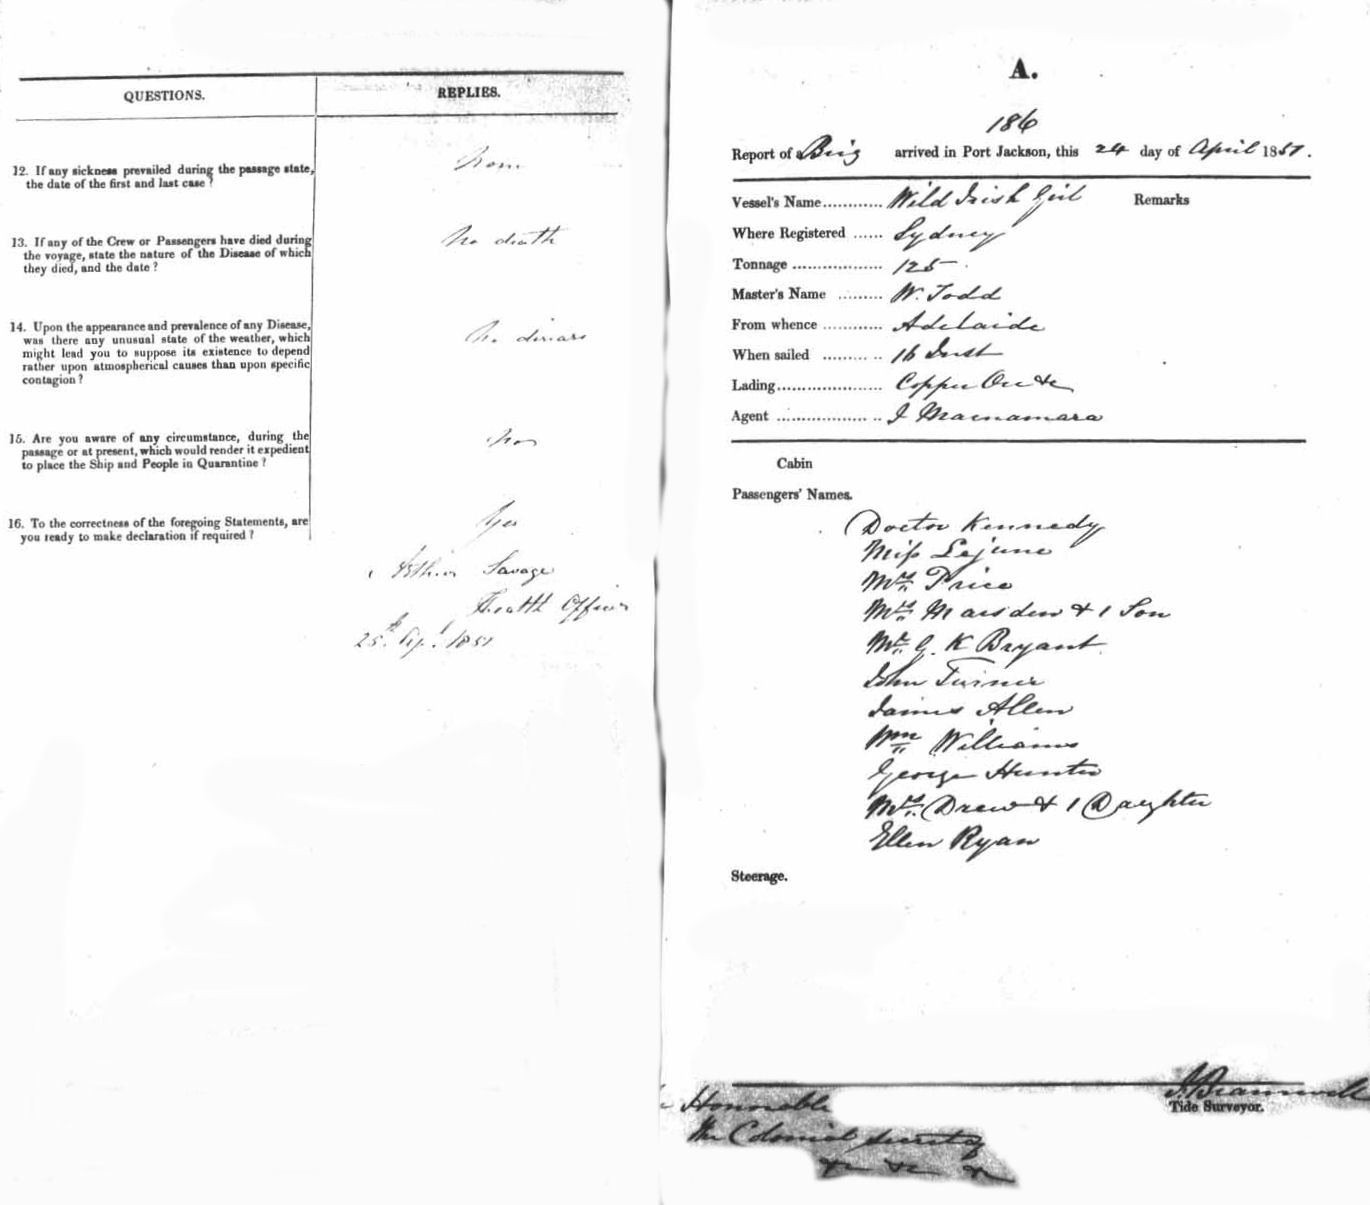 QUESTIONS.
REPLIES.
12. If any sickness prevailed during the passage state,
the date of the first and last case ?
None
13. If any of the Crew or Passengers have died during
the voyage, state the nature of the Disease of which
they died, and the date ?
No death
14. Upon the appearance and prevalence of any Disease,
was there any unusual state of the weather, which
might lead you to suppose its existence to depend
rather upon atmospherical causes than upon specific
contagion ?
No disease
15. Are you aware of any circumstance, during the
passage or at present, which would render it expedient
to place the Ship and People in Quarantine ?
16. To the correctness of the foregoing Statements, are
you ready to make declaration if required ?
Yes
Arthur Savage
Health Officer
25th Apl. 1851
A.
186
Report of a Brig arrived in Port Jackson, this 24 day of April 1851.
Vessel's Name............ Wild Irish Girl Remarks
Where Registered ...... Sydney
Tonnage .................. 125
Master's Name ......... W. Todd
From whence ............ Adelaide
When sailed ......... .. 16 Inst
Lading..................... Copper Ore &c
Agent .................. .. J Macnamara
Cabin
Passengers' Names.
Doctor Kennedy
Miss Lejune
Mrs Price
Mrs Marsden & 1 Son
Mr G. K Bryant
John Turner
James Allen
Wm Williams
George Hunter
Mrs Drew & 1 Daughter
Ellen Ryan
Steerage.
Tide Surveyor.
Honorable
The Colonial Secretary
&c &c &c